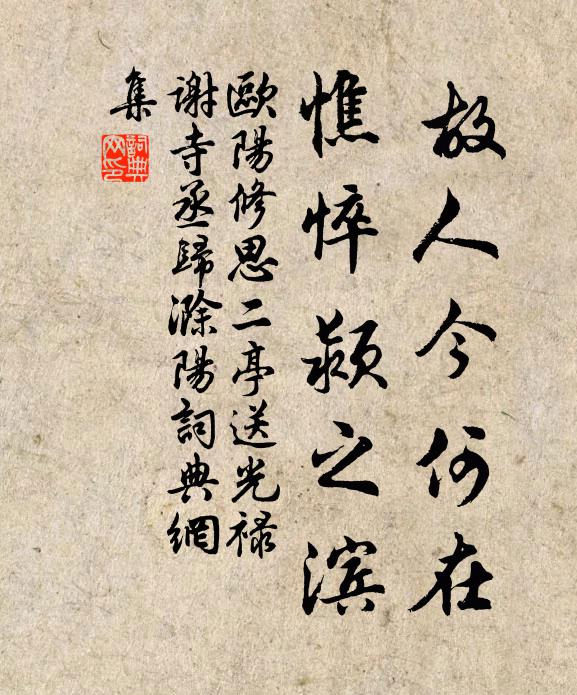 故人今何在
憔悴颍之滨
歐陽修思二亭送光禄
謝寺丞歸滁陽詞典網
集
詞典网印